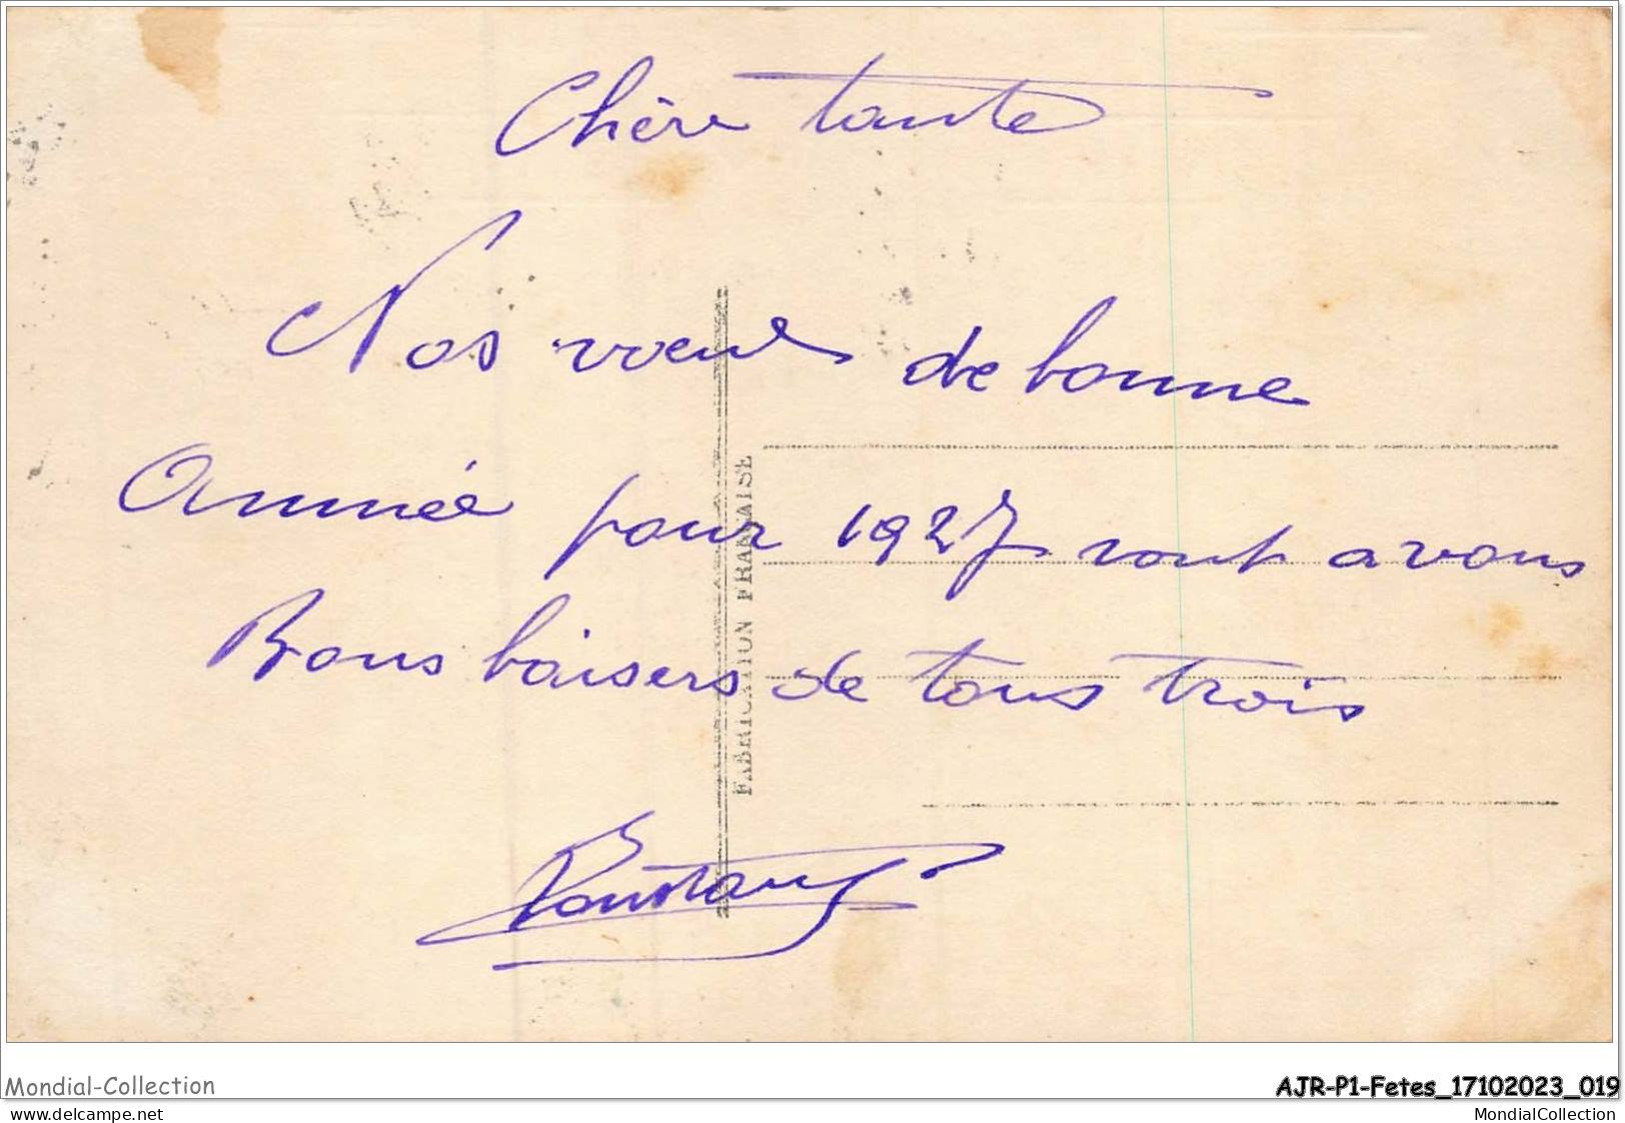 Chère tante
Nos voeux de bonne
Année pour 1927 vont avons
Bons baisers de tous trois
FABRICATION FRANÇAISE
Mondial-Collection
AJR-P1-Fetes_17102023_019
www.delcampe.net
MondialCollection